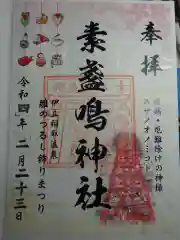 奉拝
厄除・厄難除けの神様
スサノオノミコト
素盞鳴神社
伊豆稲取温泉
雛のつるし飾りまつり
令和四年二月二十三日